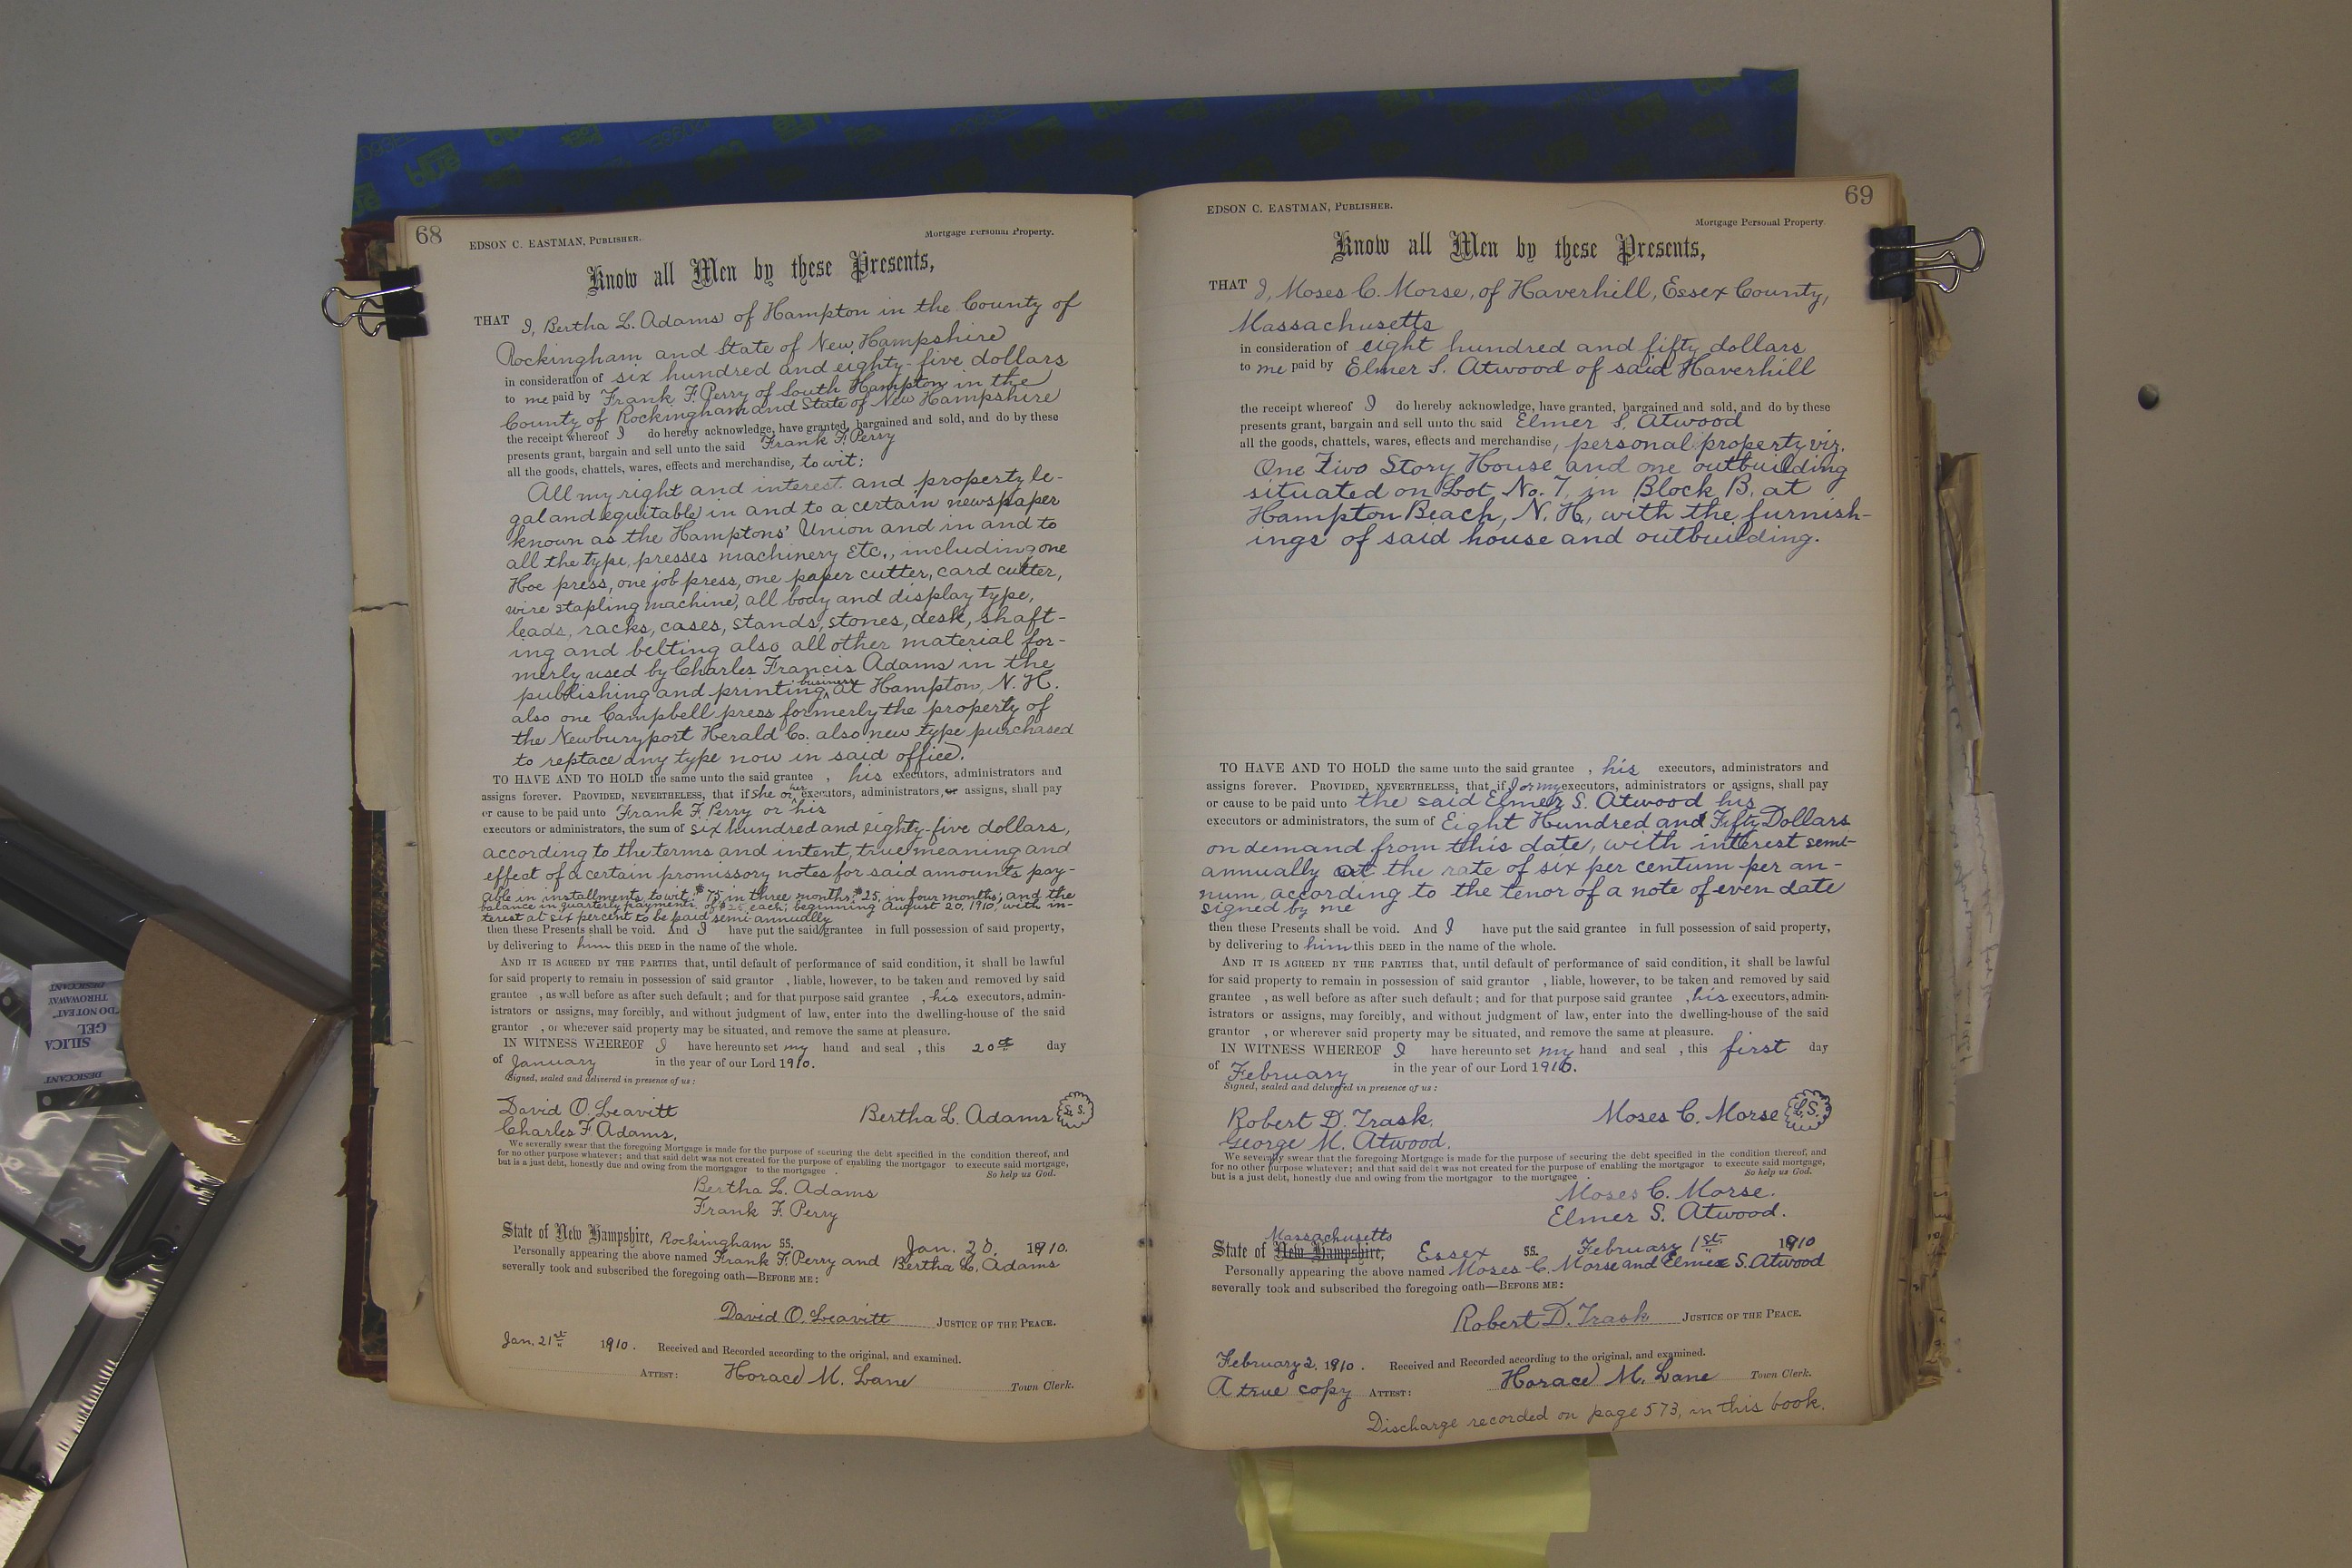 68
EDSON C. EASTMAN, PUBLISHER.
Mortgage Personal Property.
Know all Men by these Presents,
THAT I, Bertha L. Adams of Hampton in the County of
Rockingham and State of New Hampshire
in consideration of six hundred and eighty-five dollars
to me paid by Frank F. Perry of South Hampton in the
County of Rockingham and State of New Hampshire
the receipt whereof I do hereby acknowledge, have granted, bargained and sold, and do by these
presents grant, bargain and sell unto the said Frank F. Perry
all the goods, chattels, wares, effects and merchandise, to wit:
All my right and interest and property le-
gal and equitable in and to a certain newspaper
known as the Hamptons' Union and in and to
all the type, presses machinery etc., including one
Hoe press, one job press, one paper cutter, card cutter,
wire stapling machine, all body and display type,
leads, racks, cases, stands, stones, desk, shaft-
ing and belting also all other material for-
merly used by Charles Francis Adams in the
publishing and printing business at Hampton, N. H.
also one Campbell press formerly the property of
the Newburyport Herald Co. also new type purchased
to replace any type now in said office.
TO HAVE AND TO HOLD the same unto the said grantee , his executors, administrators and
assigns forever. PROVIDED, NEVERTHELESS, that if she or her executors, administrators, or assigns, shall pay
or cause to be paid unto Frank F. Perry or his
executors or administrators, the sum of six hundred and eighty-five dollars,
according to the terms and intent, true meaning and
effect of a certain promissory notes for said amounts pay-
able in installments to wit: $75 in three months; $25, in four months; and the
balance in quarterly payments of $25 each; beginning August 20, 1910, with in-
terest at six percent to be paid semi-annually
then these Presents shall be void. And I have put the said grantee in full possession of said property,
by delivering to him this DEED in the name of the whole.
AND IT IS AGREED BY THE PARTIES that, until default of performance of said condition, it shall be lawful
for said property to remain in possession of said grantor , liable, however, to be taken and removed by said
grantee , as well before as after such default; and for that purpose said grantee , his executors, admin-
istrators or assigns, may forcibly, and without judgment of law, enter into the dwelling-house of the said
grantor , or wherever said property may be situated, and remove the same at pleasure.
IN WITNESS WHEREOF I have hereunto set my hand and seal , this 20th day
of January in the year of our Lord 1910.
Signed, sealed and delivered in presence of us:
David O. Leavitt
Bertha L. Adams L.S.
Charles F. Adams.
We severally swear that the foregoing Mortgage is made for the purpose of securing the debt specified in the condition thereof, and
for no other purpose whatever; and that said debt was not created for the purpose of enabling the mortgagor to execute said mortgage,
but is a just debt, honestly due and owing from the mortgagor to the mortgagee .
So help us God.
Bertha L. Adams
Frank F. Perry
State of New Hampshire, Rockingham SS. Jan. 20. 1910.
Personally appearing the above named Frank F. Perry and Bertha L. Adams
severally took and subscribed the foregoing oath—BEFORE ME:
David O. Leavitt JUSTICE OF THE PEACE.
Jan. 21st 1910. Received and Recorded according to the original, and examined.
ATTEST: Horace M. Lane Town Clerk.
69
EDSON C. EASTMAN, PUBLISHER.
Mortgage Personal Property.
Know all Men by these Presents,
THAT I, Moses C. Morse, of Haverhill, Essex County,
Massachusetts
in consideration of eight hundred and fifty dollars
to me paid by Elmer S. Atwood of said Haverhill
the receipt whereof I do hereby acknowledge, have granted, bargained and sold, and do by these
presents grant, bargain and sell unto the said Elmer S. Atwood
all the goods, chattels, wares, effects and merchandise, personal property viz.
One Two Story House and one outbuilding
situated on Lot No. 7, in Block B, at
Hampton Beach, N. H., with the furnish-
ings of said house and outbuilding.
TO HAVE AND TO HOLD the same unto the said grantee , his executors, administrators and
assigns forever. PROVIDED, NEVERTHELESS, that if I or my executors, administrators or assigns, shall pay
or cause to be paid unto the said Elmer S. Atwood his
executors or administrators, the sum of Eight Hundred and Fifty Dollars
on demand from this date, with interest semi-
annually at the rate of six per centum per an-
num, according to the tenor of a note of even date
signed by me
then these Presents shall be void. And I have put the said grantee in full possession of said property,
by delivering to him this DEED in the name of the whole.
AND IT IS AGREED BY THE PARTIES that, until default of performance of said condition, it shall be lawful
for said property to remain in possession of said grantor , liable, however, to be taken and removed by said
grantee , as well before as after such default; and for that purpose said grantee , his executors, admin-
istrators or assigns, may forcibly, and without judgment of law, enter into the dwelling-house of the said
grantor , or wherever said property may be situated, and remove the same at pleasure.
IN WITNESS WHEREOF I have hereunto set my hand and seal , this first day
of February in the year of our Lord 1910.
Signed, sealed and delivered in presence of us:
Robert D. Trask.
Moses C. Morse L.S.
George M. Atwood.
We severally swear that the foregoing Mortgage is made for the purpose of securing the debt specified in the condition thereof, and
for no other purpose whatever; and that said debt was not created for the purpose of enabling the mortgagor to execute said mortgage,
but is a just debt, honestly due and owing from the mortgagor to the mortgagee
So help us God.
Moses C. Morse.
Elmer S. Atwood.
Massachusetts
State of New Hampshire, Essex SS. February 1st 1910
Personally appearing the above named Moses C. Morse and Elmer S. Atwood
severally took and subscribed the foregoing oath—BEFORE ME:
Robert D. Trask JUSTICE OF THE PEACE.
February 2, 1910. Received and Recorded according to the original, and examined.
A true copy ATTEST: Horace M. Lane Town Clerk.
Discharge recorded on page 573, in this book.
DESICCANT
SILICA
GEL
"DO NOT EAT"
THROWAWAY
DESICCANT